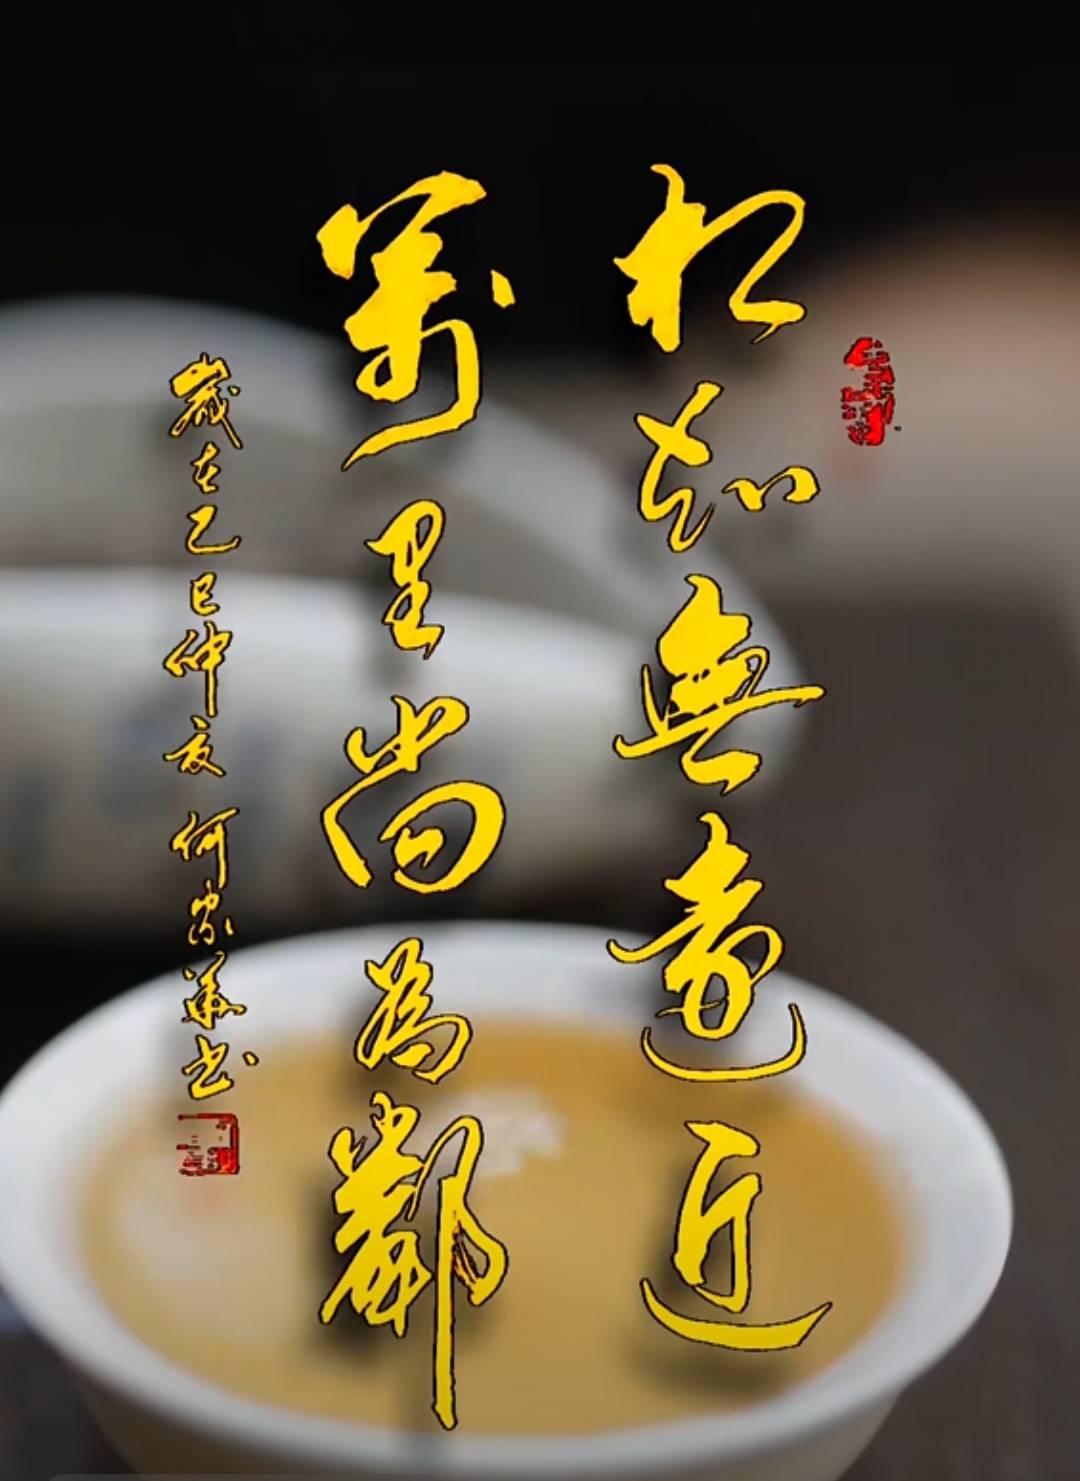 相知無遠近
萬里尚為鄰
歲在乙巳仲夏 何家英书